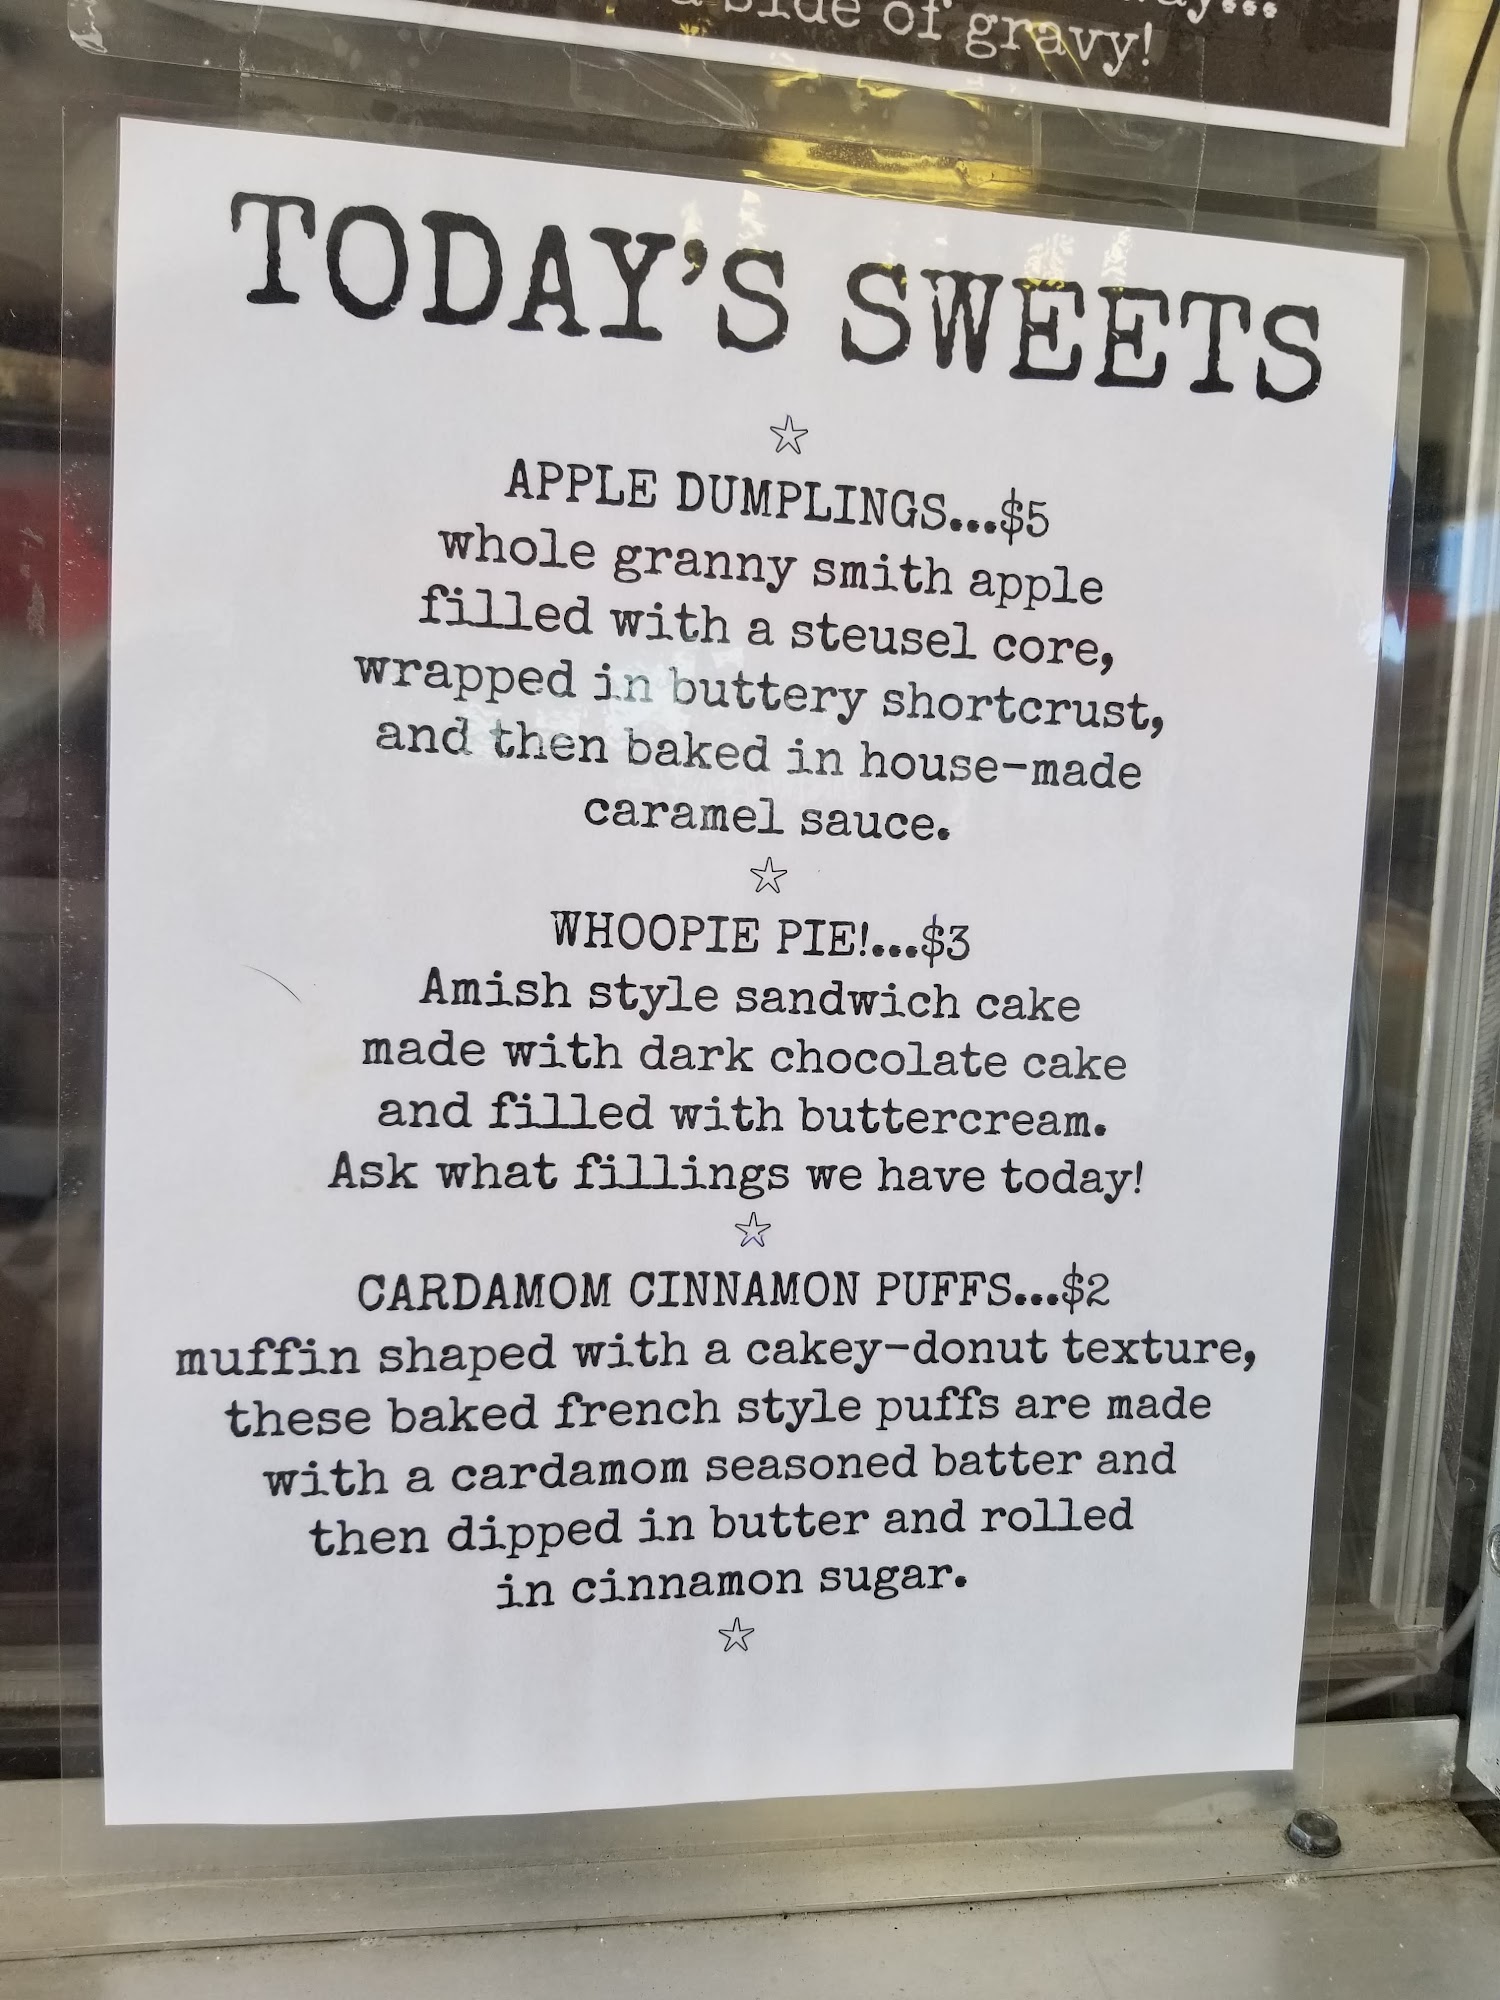 side of gravy!
TODAY'S SWEETS
APPLE DUMPLINGS...$5
whole granny smith apple
filled with a steusel core,
wrapped in buttery shortcrust,
and then baked in house-made
caramel sauce.
WHOOPIE PIE!...$3
Amish style sandwich cake
made with dark chocolate cake
and filled with buttercream.
Ask what fillings we have today!
CARDAMOM CINNAMON PUFFS...$2
muffin shaped with a cakey-donut texture,
these baked french style puffs are made
with a cardamom seasoned batter and
then dipped in butter and rolled
in cinnamon sugar.